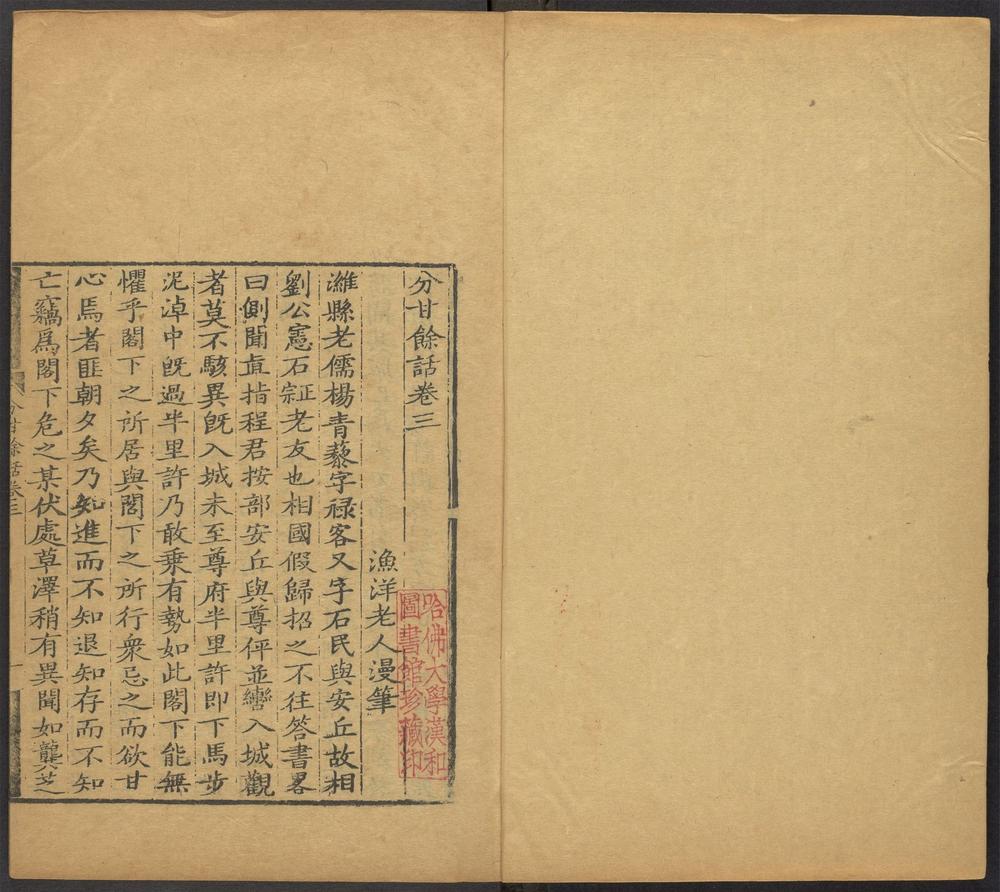 分甘餘話卷三
漁洋老人漫筆
哈佛大學漢和
圖書館珍藏印
濰縣老儒楊青藜字祿客又字石民與安丘故相
劉公憲石宗正老友也相國假歸招之不往答書畧
曰側聞直指程君按部安丘與尊伻並轡入城觀
者莫不駭異旣入城未至尊府半里許即下馬步
泥淖中旣過半里許乃敢乗有勢如此閣下能無
懼乎閣下之所居與閣下之所行衆忌之而欲甘
心焉者匪朝夕矣乃知進而不知退知存而不知
亡竊爲閣下危之某伏處草澤稍有異聞如龔芝
分甘餘話卷三
一